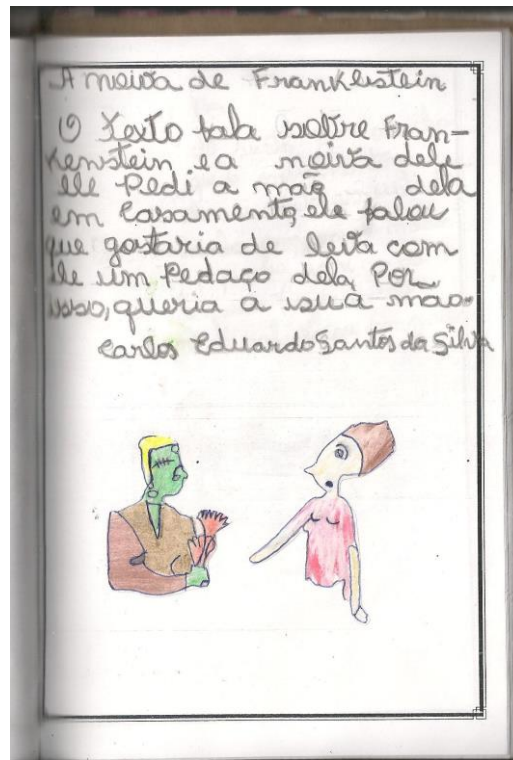 A noiva de Franklestein
O Texto fala sobre Fran-
kenstein e a noiva dele
ele Pedi a mão dela
em casamento, ele falou
que gostaria de leva com
ele um Pedaço dela, Por
isso, queria a sua mao.
Carlos Eduardo Santos da Silva